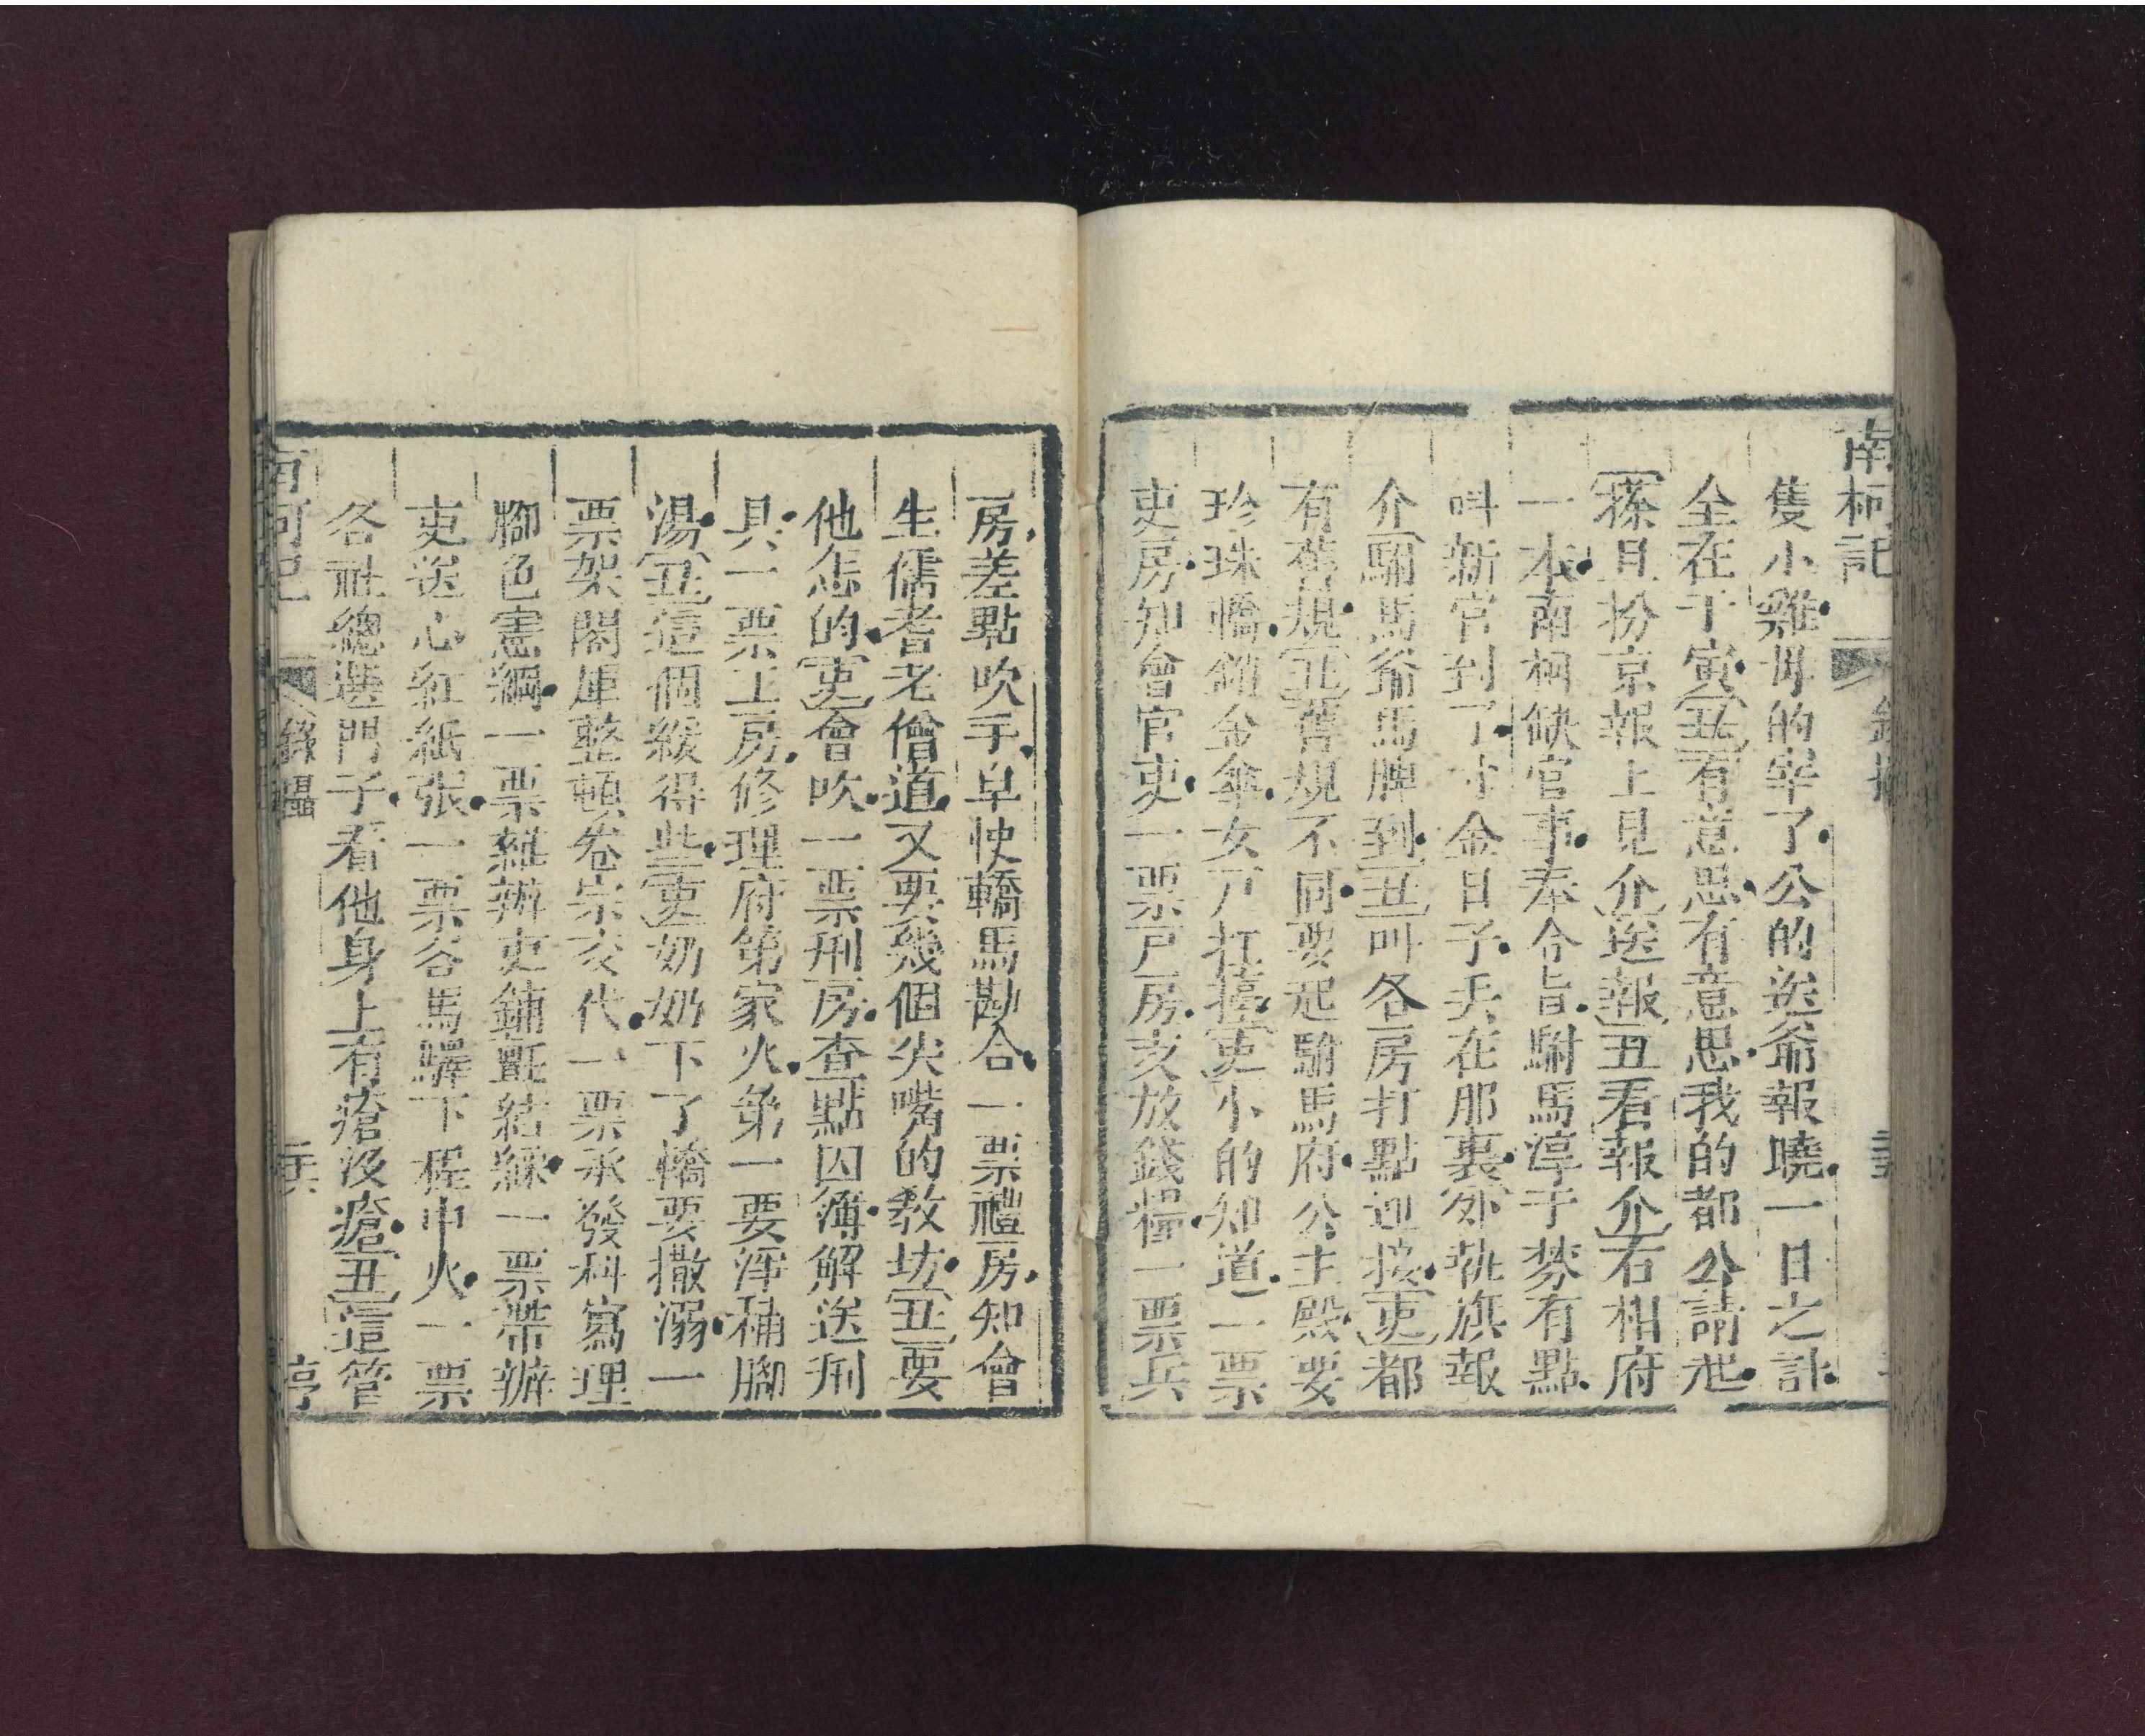 南柯記
隻小雞母的宰了公的送爺報曉一日之計
全在于寅丑有意思有意思我的都公請起
雜旦扮京報上見介送報丑看報介右相府
一本南柯缺官事奉令旨駙馬淳于棼有點
叫新官到了寸金日子天在那裏外執旗報
介駙馬爺馬牌到丑叫各房打點迎接吏都
有舊規丑舊規不同要起駙馬府公主殿要
珍珠轎銷金傘女戶扛擡吏小的知道一票
吏房知會官吏一票戶房支放錢糧一票兵
房差點吹手皁快轎馬勘合一票禮房知會
生儒耆老僧道又要幾個尖嘴的教坊丑要
他怎的吏會吹一票刑房查點囚簿解送刑
具一票工房修理府第家火第一要淨桶腳
湯丑這個緩得些吏奶奶下了轎要撒溺一
票架閣庫整頓卷宗交代一票承發科寫理
腳色憲綱一票雜辦吏鋪氈結綵一票帶辦
吏送心紅紙張一票各馬驛下程中火一票
各社總選門子看他身上有瘡沒瘡丑這管
南柯記 錄攝 二六 亭